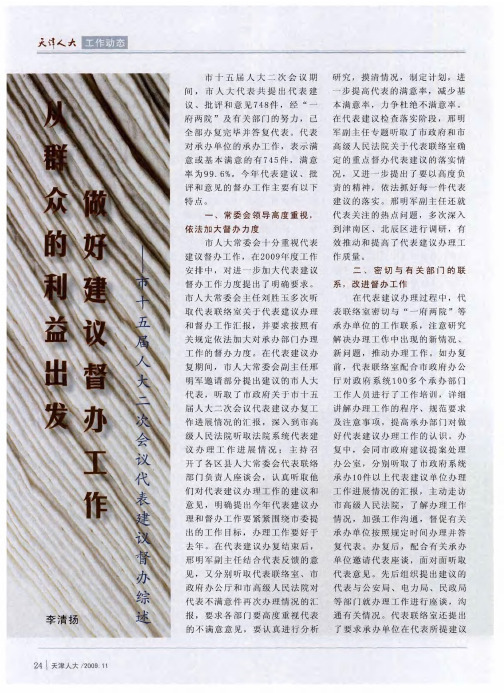 天津人大 工作动态
从群众的利益出发
做好建议督办工作
——市十五届人大二次会议代表建议督办综述
李清扬
市十五届人大二次会议期
间，市人大代表共提出代表建
议、批评和意见748件，经“一
府两院”及有关部门的努力，已
全部办复完毕并答复代表。代表
对承办单位的承办工作，表示满
意或基本满意的有745件，满意
率为99.6%。今年代表建议、批
评和意见的督办工作主要有以下
特点。
一、常委会领导高度重视，
依法加大督办力度
市人大常委会十分重视代表
建议督办工作，在2009年度工作
安排中，对进一步加大代表建议
督办工作力度提出了明确要求。
市人大常委会主任刘胜玉多次听
取代表联络室关于代表建议办理
和督办工作汇报，并要求按照有
关规定依法加大对承办部门办理
工作的督办力度。在代表建议办
复期间，市人大常委会副主任邢
明军邀请部分提出建议的市人大
代表，听取了市政府关于市十五
届人大二次会议代表建议办复工
作进展情况的汇报，深入到市高
级人民法院听取法院系统代表建
议办理工作进展情况；主持召
开了各区县人大常委会代表联络
部门负责人座谈会，认真听取他
们对代表建议办理工作的建议和
意见，明确提出今年代表建议办
理和督办工作要紧紧围绕市委提
出的工作目标，办理工作要好于
去年。在代表建议办复结束后，
邢明军副主任结合代表反馈的意
见，又分别听取代表联络室、市
政府办公厅和市高级人民法院对
代表不满意件再次办理情况的汇
报，要求各部门要高度重视代表
的不满意意见，要认真进行分析
研究，摸清情况，制定计划，进
一步提高代表的满意率，减少基
本满意率，力争杜绝不满意率。
在代表建议检查落实阶段，邢明
军副主任专题听取了市政府和市
高级人民法院关于代表联络室确
定的重点督办代表建议的落实情
况，又进一步提出了要以高度负
责的精神，依法抓好每一件代表
建议的落实。邢明军副主任还就
代表关注的热点问题，多次深入
到津南区、北辰区进行调研，有
效推动和提高了代表建议办理工
作质量。
二、密切与有关部门的联
系，改进督办工作
在代表建议办理过程中，代
表联络室密切与“一府两院”等
承办单位的工作联系，注意研究
解决办理工作中出现的新情况、
新问题，推动办理工作。如办复
前，代表联络室配合市政府办公
厅对政府系统100多个承办部门
工作人员进行了工作培训，详细
讲解办理工作的程序、规范要求
及注意事项，提高承办部门对做
好代表建议办理工作的认识。办
复中，会同市政府建议提案处理
办公室，分别听取了市政府系统
承办10件以上代表建议单位办理
工作进展情况的汇报，主动走访
市高级人民法院，了解办理工作
情况，加强工作沟通，督促有关
承办单位按照规定时间办理并答
复代表。办复后，配合有关承办
单位邀请代表座谈，面对面听取
代表意见。先后组织提出建议的
代表与公安局、电力局、民政局
等部门就办理工作进行座谈，沟
通有关情况。代表联络室还提出
了要求承办单位在代表所提建议
24 天津人大/2009.11